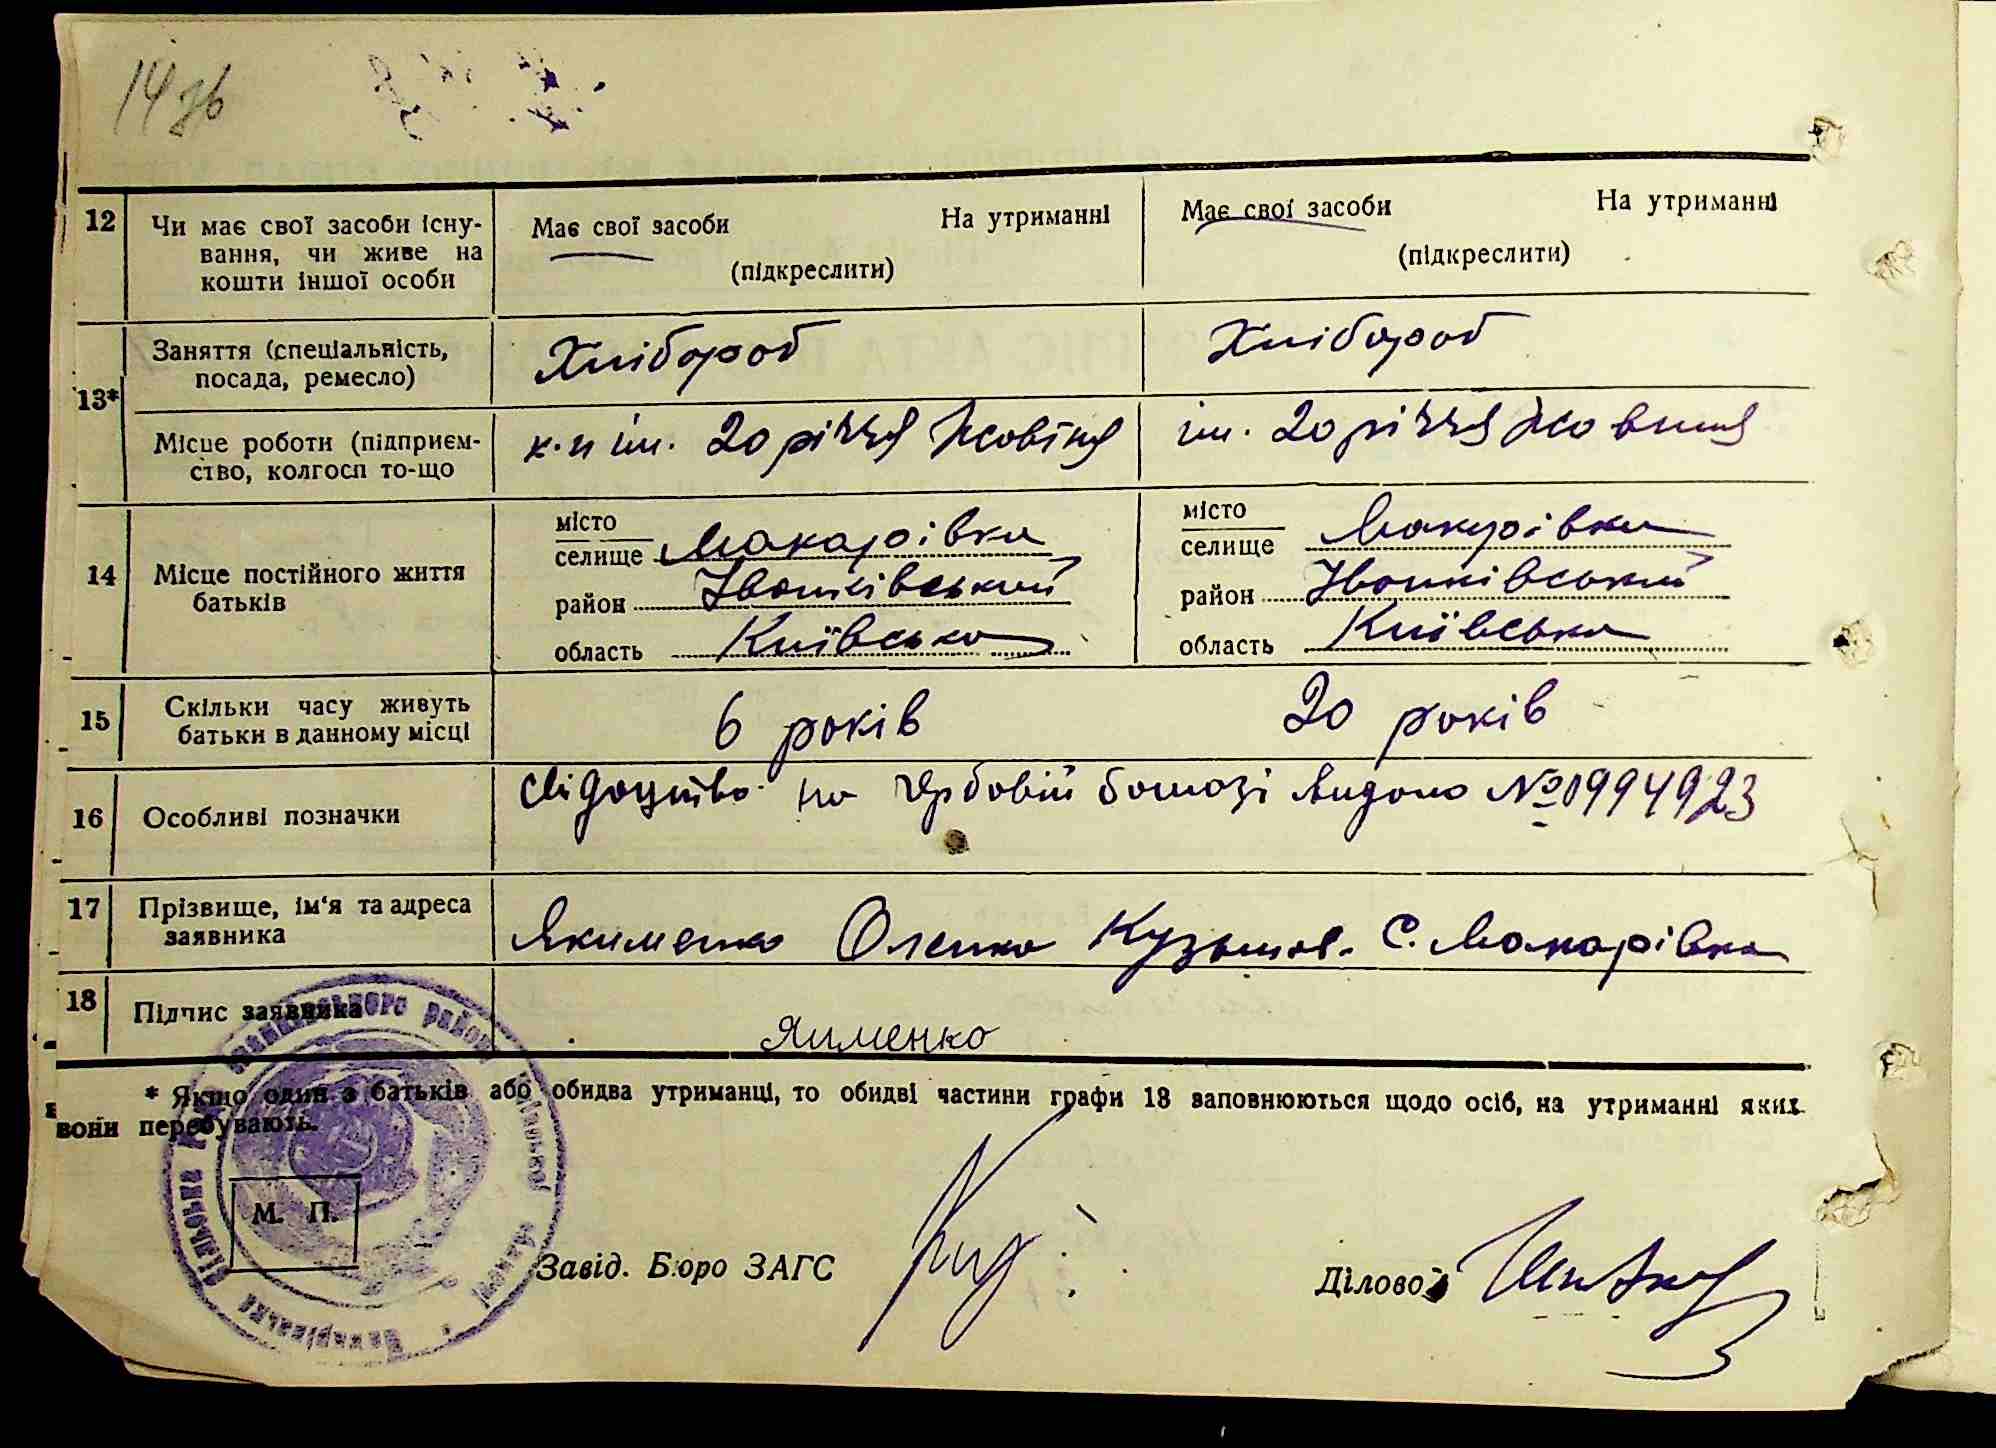 14 зв
12 Чи має свої засоби існу-
вання, чи живе на
кошти іншої особи
Має свої засоби На утриманні
(підкреслити)
Має свої засоби На утриманні
(підкреслити)
13* Заняття (спеціальність,
посада, ремесло)
Хлібороб Хлібороб
Місце роботи (підприєм-
ство, колгосп то-що
к.п ім. 20 річчя Жовтня ім. 20 річчя Жовтня
14 Місце постійного життя
батьків
місто
селище Макарівка
район Іванківський
область Київська
місто
селище Макарівка
район Іванківський
область Київська
15 Скільки часу живуть
батьки в данному місці
6 років 20 років
16 Особливі позначки
Свідоцтво на гербовій бомазі видано № 1994923
17 Прізвище, ім'я та адреса
заявника
Якименко Олена Кузьмів. С. Макарівка
18 Підпис заявника
Якименко
* Якщо один з батьків або обидва утриманці, то обидві частини графи 13 заповнюються щодо осіб, на утриманні яких
вони перебувають.
М. П.
Завід. Бюро ЗАГС
Діловод